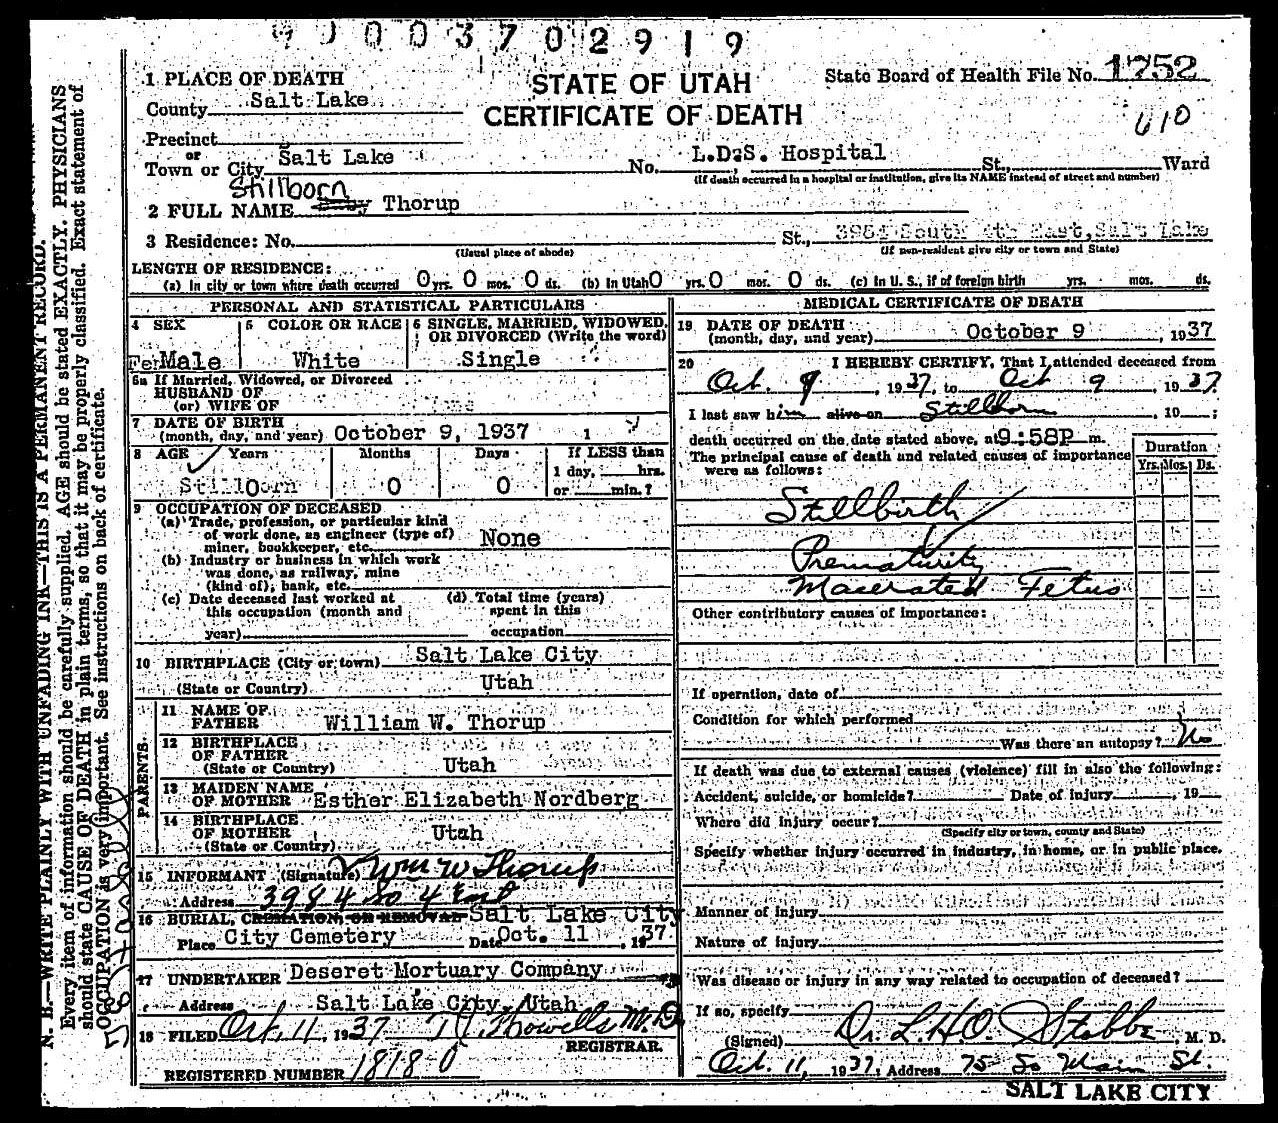 0003702919
STATE OF UTAH
CERTIFICATE OF DEATH
State Board of Health File No. 1752
610
1 PLACE OF DEATH
County Salt Lake
Precinct
or
Town or City Salt Lake No. L.D.S. Hospital St., Ward
(If death occurred in a hospital or institution, give its NAME instead of street and number)
Stillborn
2 FULL NAME Baby Thorup
3 Residence: No. St., 3984 South 4th East, Salt Lake
(Usual place of abode) (If non-resident give city or town and State)
LENGTH OF RESIDENCE:
(a) In city or town where death occurred 0 yrs. 0 mos. 0 ds. (b) In Utah 0 yrs. 0 mos. 0 ds. (c) In U. S., if of foreign birth yrs. mos. ds.
PERSONAL AND STATISTICAL PARTICULARS
4 SEX 5 COLOR OR RACE 6 SINGLE, MARRIED, WIDOWED, OR DIVORCED (Write the word)
FeMale White Single
5a If Married, Widowed, or Divorced
HUSBAND OF
(or) WIFE OF
7 DATE OF BIRTH
(month, day, and year) October 9, 1937
8 AGE Years Months Days If LESS than
1 day, hrs.
or min.?
Stillborn 0 0
9 OCCUPATION OF DECEASED
(a) Trade, profession, or particular kind
of work done, as engineer (type of)
miner, bookkeeper, etc. None
(b) Industry or business in which work
was done, as railway, mine
(kind of), bank, etc.
(c) Date deceased last worked at (d) Total time (years)
this occupation (month and spent in this
year) occupation
10 BIRTHPLACE (City or town) Salt Lake City
(State or Country) Utah
PARENTS
11 NAME OF
FATHER William W. Thorup
12 BIRTHPLACE
OF FATHER
(State or Country) Utah
13 MAIDEN NAME
OF MOTHER Esther Elizabeth Nordberg
14 BIRTHPLACE
OF MOTHER Utah
(State or Country)
15 INFORMANT (Signature) Wm W Thorup
Address 3984 So 4 East
16 BURIAL, CREMATION, OR REMOVAL Salt Lake City
Place City Cemetery Date Oct. 11, 1937
17 UNDERTAKER Deseret Mortuary Company
Address Salt Lake City, Utah
18 FILED Oct. 11, 1937 T. J. Howells M.D.
REGISTRAR.
REGISTERED NUMBER 1818-0
MEDICAL CERTIFICATE OF DEATH
19 DATE OF DEATH
(month, day, and year) October 9, 1937
20 I HEREBY CERTIFY, That I attended deceased from
Oct. 9, 1937, to Oct 9, 1937.
I last saw him alive on Stillborn, 19 ;
death occurred on the date stated above, at 9:58P m.
The principal cause of death and related causes of importance
were as follows:
Duration
Yrs. Mos. Ds.
Stillbirth
Prematurity
Macerated Fetus
Other contributory causes of importance:
If operation, date of
Condition for which performed
Was there an autopsy? No
If death was due to external causes (violence) fill in also the following:
Accident, suicide, or homicide? Date of injury , 19
Where did injury occur?
(Specify city or town, county and State)
Specify whether injury occurred in industry, in home, or in public place.
Manner of injury
Nature of injury
Was disease or injury in any way related to occupation of deceased?
If so, specify
(Signed) Dr. L.H.O. Stobbe, M. D.
Oct. 11, 1937, Address 75 So Main St.
SALT LAKE CITY
N. B.—WRITE PLAINLY WITH UNFADING INK—THIS IS A PERMANENT RECORD.
Every item of information should be carefully supplied. AGE should be stated EXACTLY. PHYSICIANS
should state CAUSE OF DEATH in plain terms, so that it may be properly classified. Exact statement of
OCCUPATION is very important. See instructions on back of certificate.